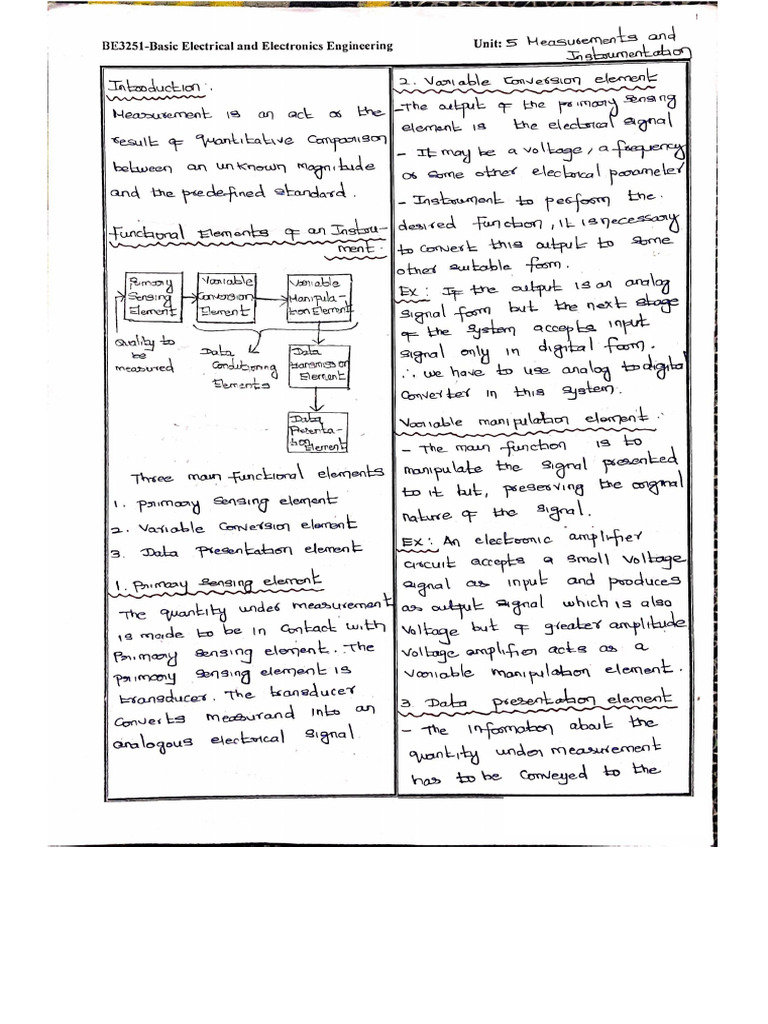 1
BE3251-Basic Electrical and Electronics Engineering
Unit: 5 Measurements and
Instrumentation
Introduction:
Measurement is an act or the
result of quantitative comparison
between an unknown magnitude
and the predefined standard.
Functional Elements of an Instru-
ment.
Primary
Sensing
Element
Variable
Conversion
Element
Variable
Manipula-
tion Element
Quality to
be
measured
Data
Conditioning
Elements
Data
transmission
Element
Data
Presenta-
tion
Element
Three main functional elements
1. Primary Sensing element
2. Variable Conversion element
3. Data Presentation element
1. Primary Sensing element
The quantity under measurement
is made to be in contact with
Primary sensing element. The
primary sensing element is
transducer. The transducer
converts measurand into an
analogous electrical signal.
2. Variable Conversion element
-The output of the primary sensing
element is the electrical signal
- It may be a voltage, a frequency
or some other electrical parameter
- Instrument to perform the
desired function, it is necessary
to convert this output to some
other suitable form.
Ex: If the output is an analog
signal form but the next stage
of the system accepts input
signal only in digital form.
∴ we have to use analog to digital
converter in this system.
Variable manipulation element:
- The main function is to
manipulate the signal presented
to it but, preserving the original
nature of the signal.
Ex: An electronic amplifier
circuit accepts a small voltage
signal as input and produces
as output signal which is also
voltage but of greater amplitude
voltage amplifier acts as a
variable manipulation element.
3. Data presentation element
- The information about the
quantity under measurement
has to be conveyed to the